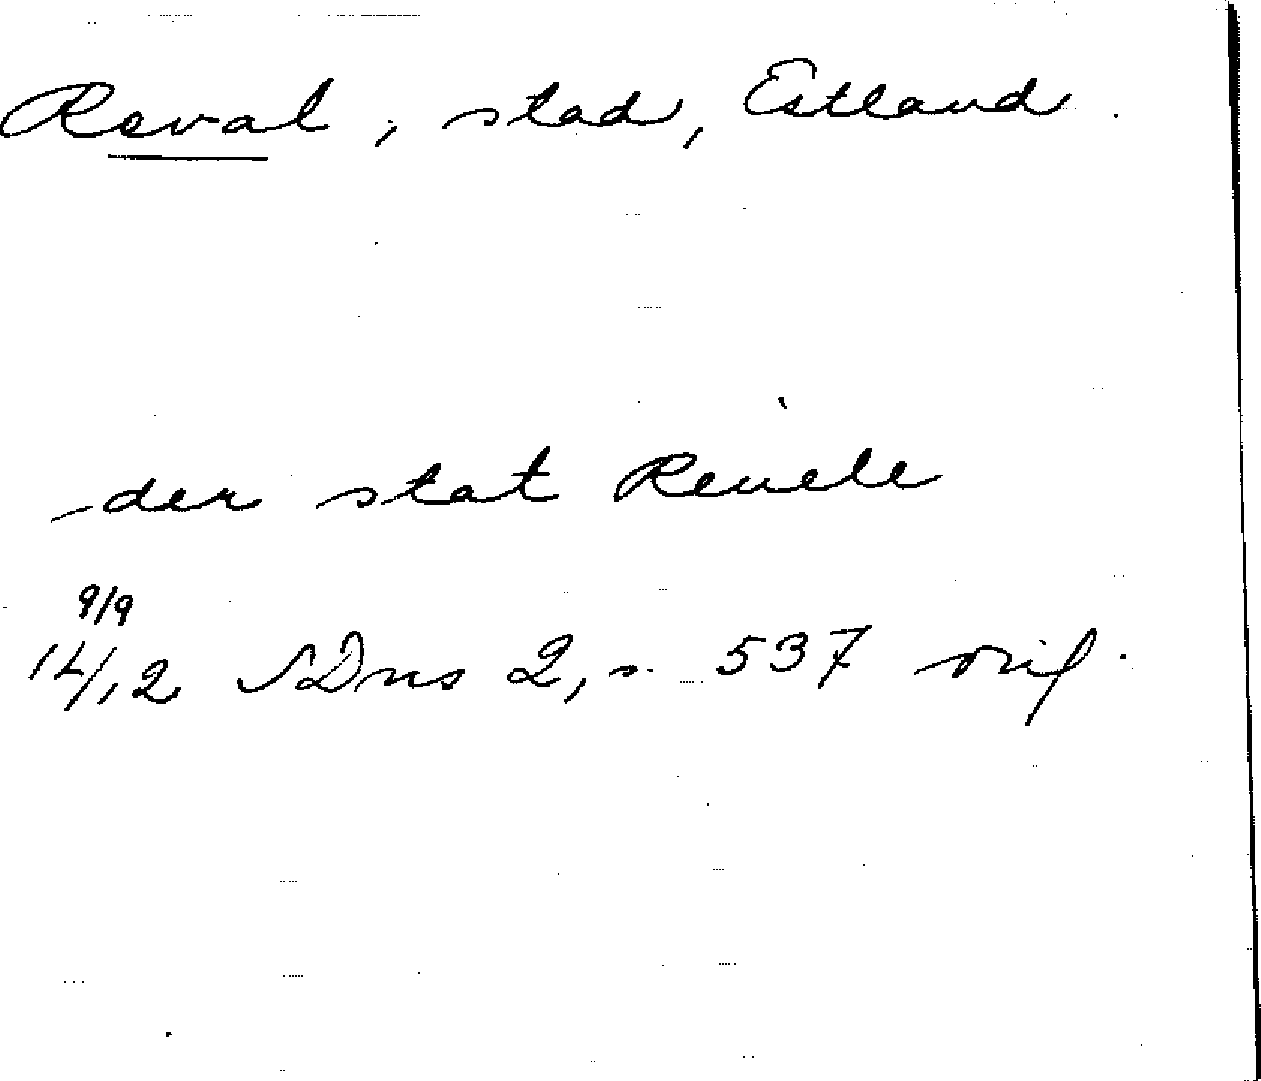 Reval, stad, Estland.
der stat Reuele
9/9
1412 SDns 2, s. 537 orig.